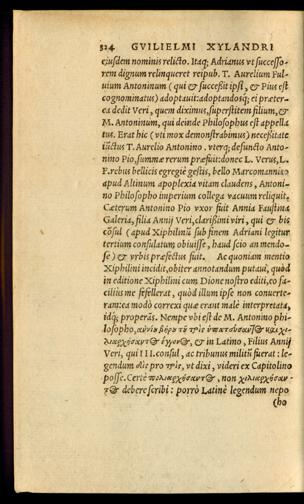 324 GVILIELMI XYLANDRI
eiusdem nominis relicto. Itaq; Adrianus vt successo-
rem dignum relinqueret reipub. T. Aurelium Ful-
uium Antoninum (qui & successit ipsi, & Pius est
cognominatus) adoptauit: adoptandosq; ei præter-
ea dedit Veri, quem diximus, superstitem filium, &
M. Antoninum, qui deinde Philosophus est appella
tus. Erat hic (vti mox demonstrabimus) necessitate
iūctus T. Aurelio Antonino. vterq; defuncto Anto-
nino Pio, summæ rerum præfuit: donec L. Verus, L.
F. rebus bellicis egregiè gestis, bello Marcomannico
apud Altinum apoplexia vitam claudens, Antoni-
no Philosopho imperium collega vacuum reliquit.
Cæterum Antonino Pio vxor fuit Annia Faustina
Galeria, filia Annij Veri, clarissimi viri, qui & bis
cōsul (apud Xiphilinū sub finem Adriani legitur
tertium consulatum obiuisse, haud scio an mendo-
se) & vrbis præfectus fuit. Ac quoniam mentio
Xiphilini incidit, obiter annotandum putaui, quòd
in editione Xiphilini cum Dione nostro editi, eo fa-
cilius me fefellerat, quòd illum ipse non conuerte-
ram: ea modò correxi quæ erant malè interpretata,
idq; properās. Nempe vbi est de M. Antonino phi-
losopho, ὑπατεύσαντ@ καὶ χι-
λιαρχήσαντ@ ἔγγον@, & in Latino, Filius Annij
Veri, qui III. consul, ac tribunus militū fuerat: le-
gendum δὶς pro τρὶς, vt dixi, videri ex Capitolino
posse. Certè πολιαρχήσαντ@, non χιλιαρχήσαν-
τ@ debere scribi: porrò Latinè legendum nepo
(ho